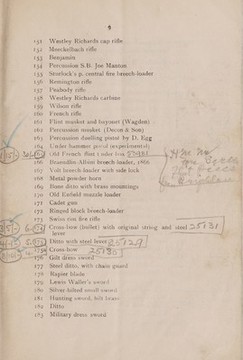 9
151 Westley Richards cap rifle
152 Monckelbach rifle
153 Benjamin
154 Percussion S.B. Joe Manton
155 central fire breech-loader
156 Remington rifle
157 Peabody rifle
158 Westley Richards carbine
159 Wilson rifle
160 French rifle
161 Flint musket and bayonet
162 Percussion musket
163 Percussion duelling pistol by D. Egg
164 Under hammer pistol (experimental)
165 Old French flint
166 breech loader, 1866
167 Volt breech-loader with side lock
168 Metal powder horn
169 Bone ditto with brass mountings
170 Old Enfield muzzle loader
171 Cadet gun
172 Ringed block breech-loader
173 Swiss rim fire rifle
Cross-bow (bullet) with original string and steel
lever
Ditto with steel lever 25129
Cross-bow 25130
176 Gilt dress sword
177 Steel ditto, with chain guard
178 Rapier blade
179 Lewis Waller's sword
180 Silver-hilted small sword
181 Hunting sword, hilt brass
182 Ditto
183 Military dress sword